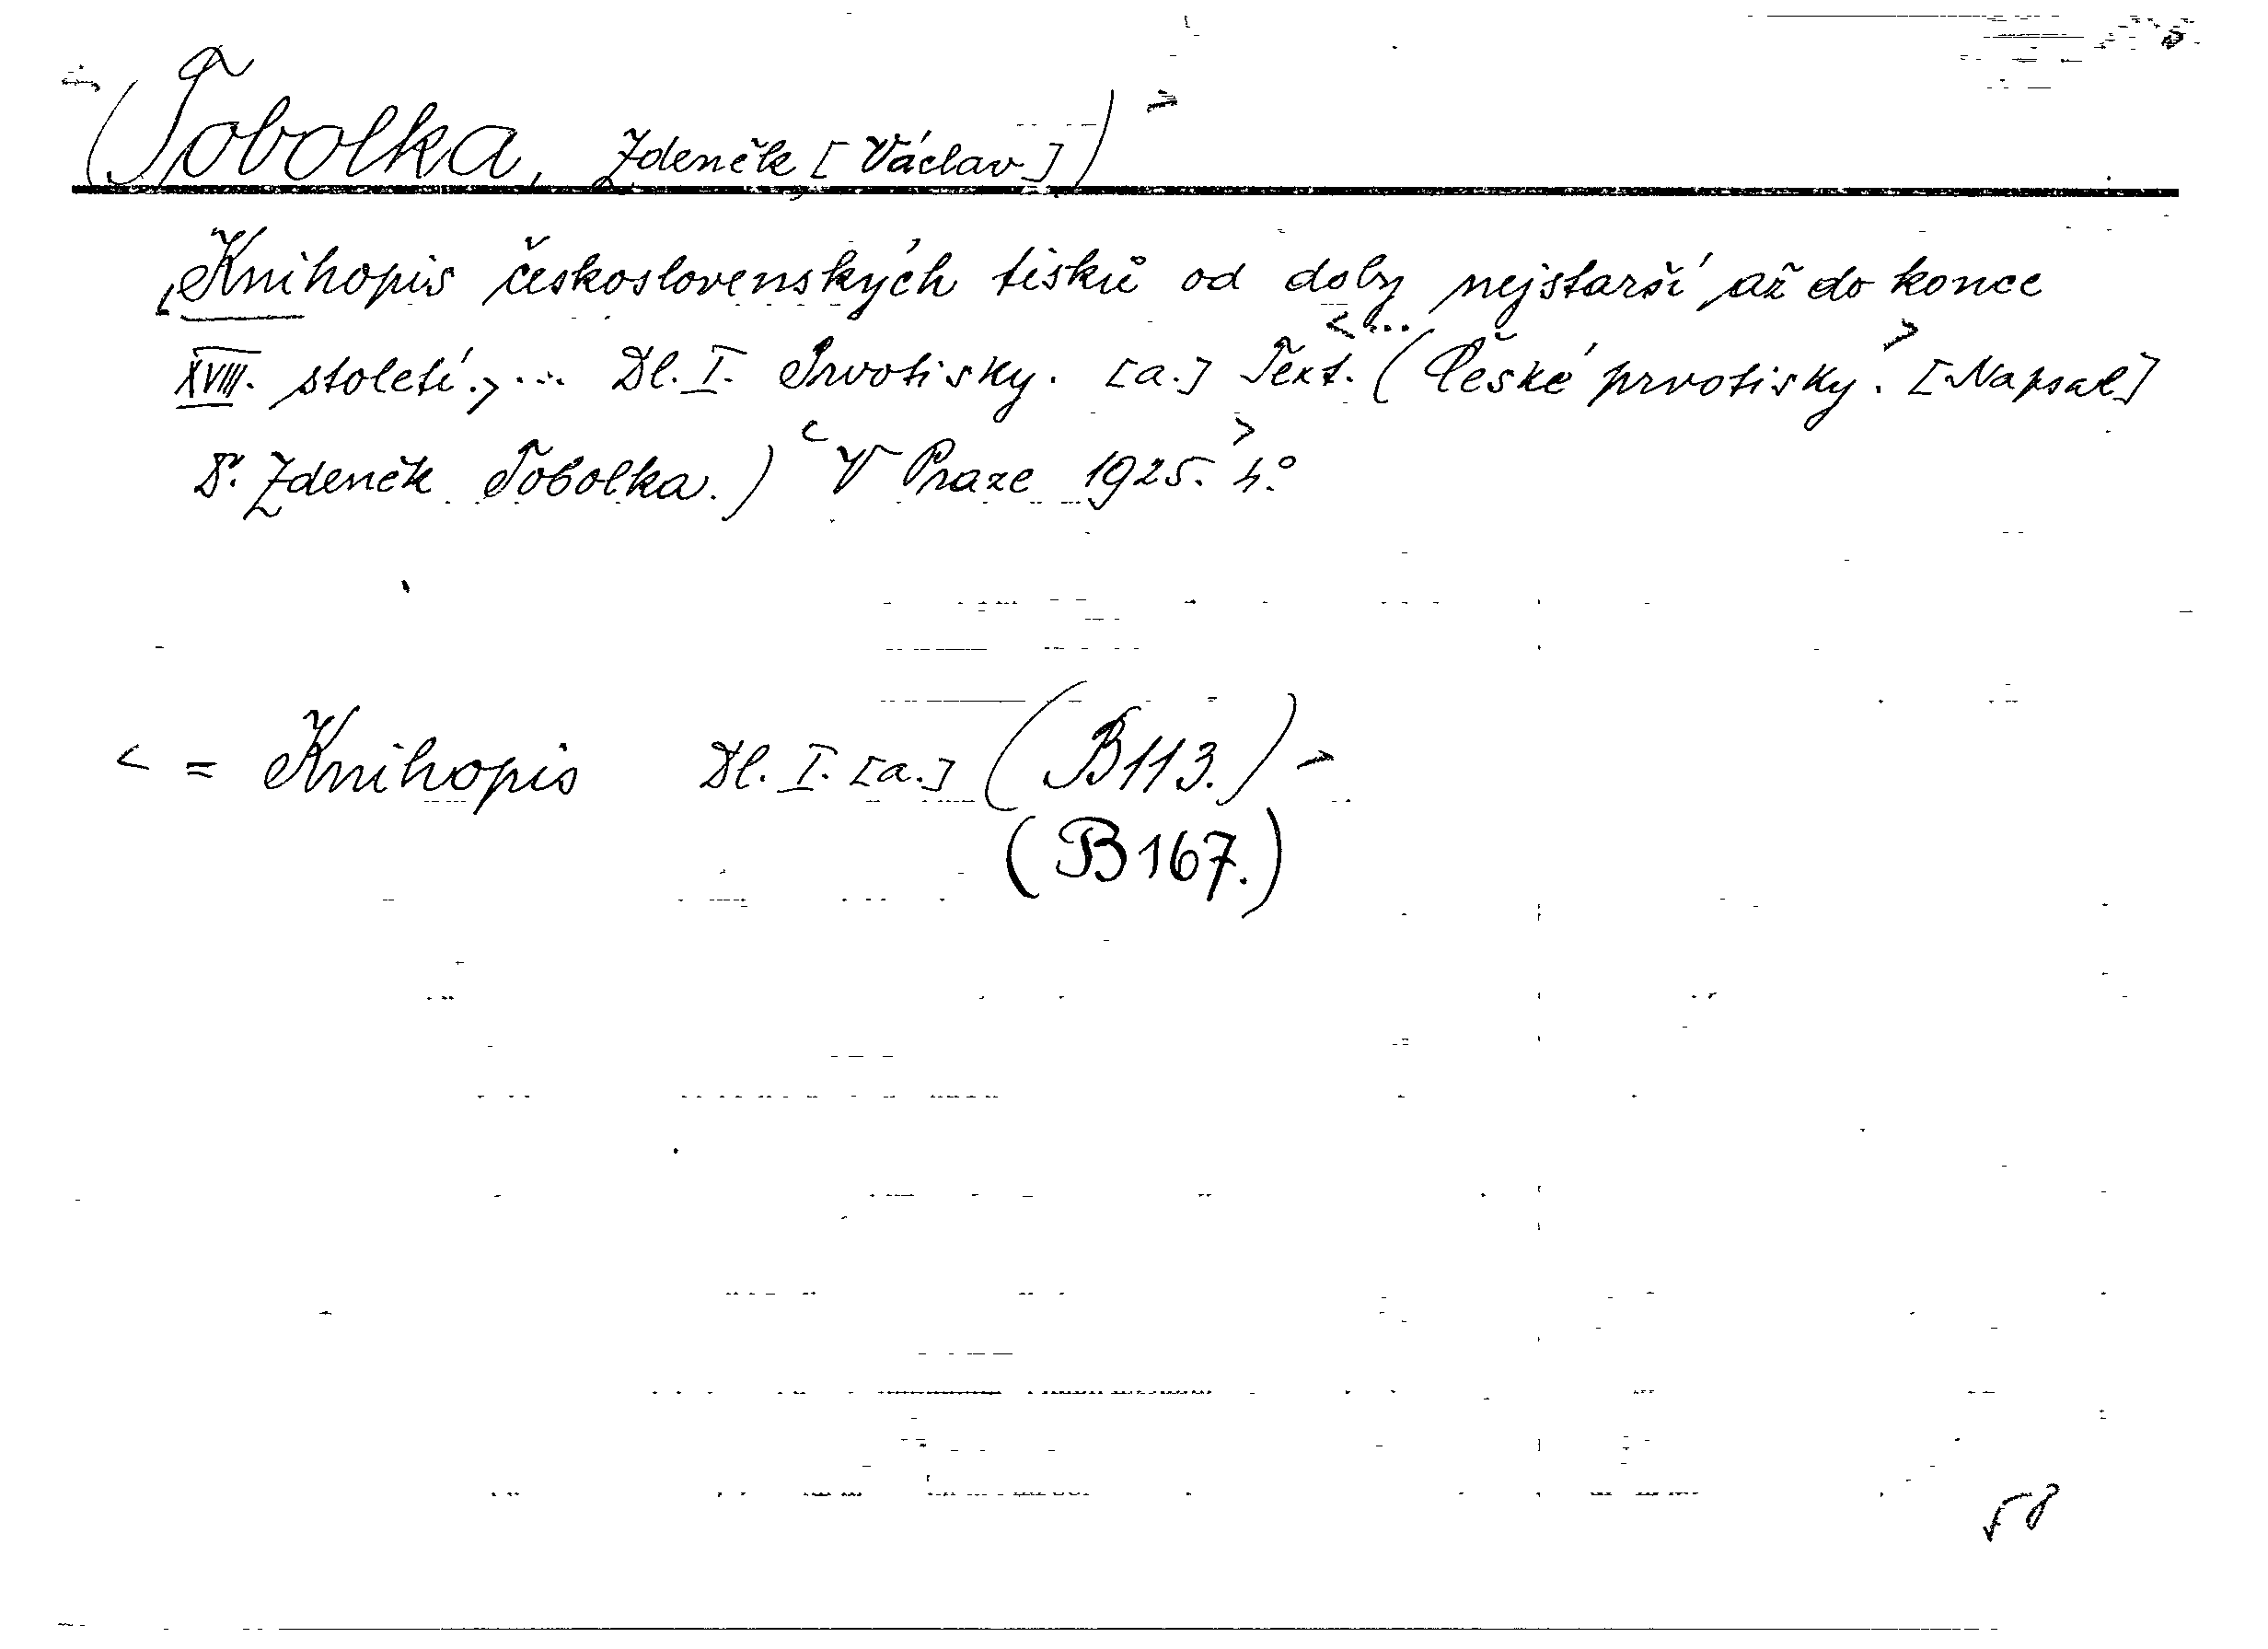 (Tobolka, Zdeněk [Václav])>
<Knihopis československých tisků od doby nejstarší až do konce
XVIII. století.> ... Dl. I. Prvotisky. [a.] Text. <...(České prvotisky.> [Napsal]
Dr. Zdeněk Tobolka.) <V Praze 1925.> 4.°
< = Knihopis Dl. I. [a.] (B113.) >
(B167.)